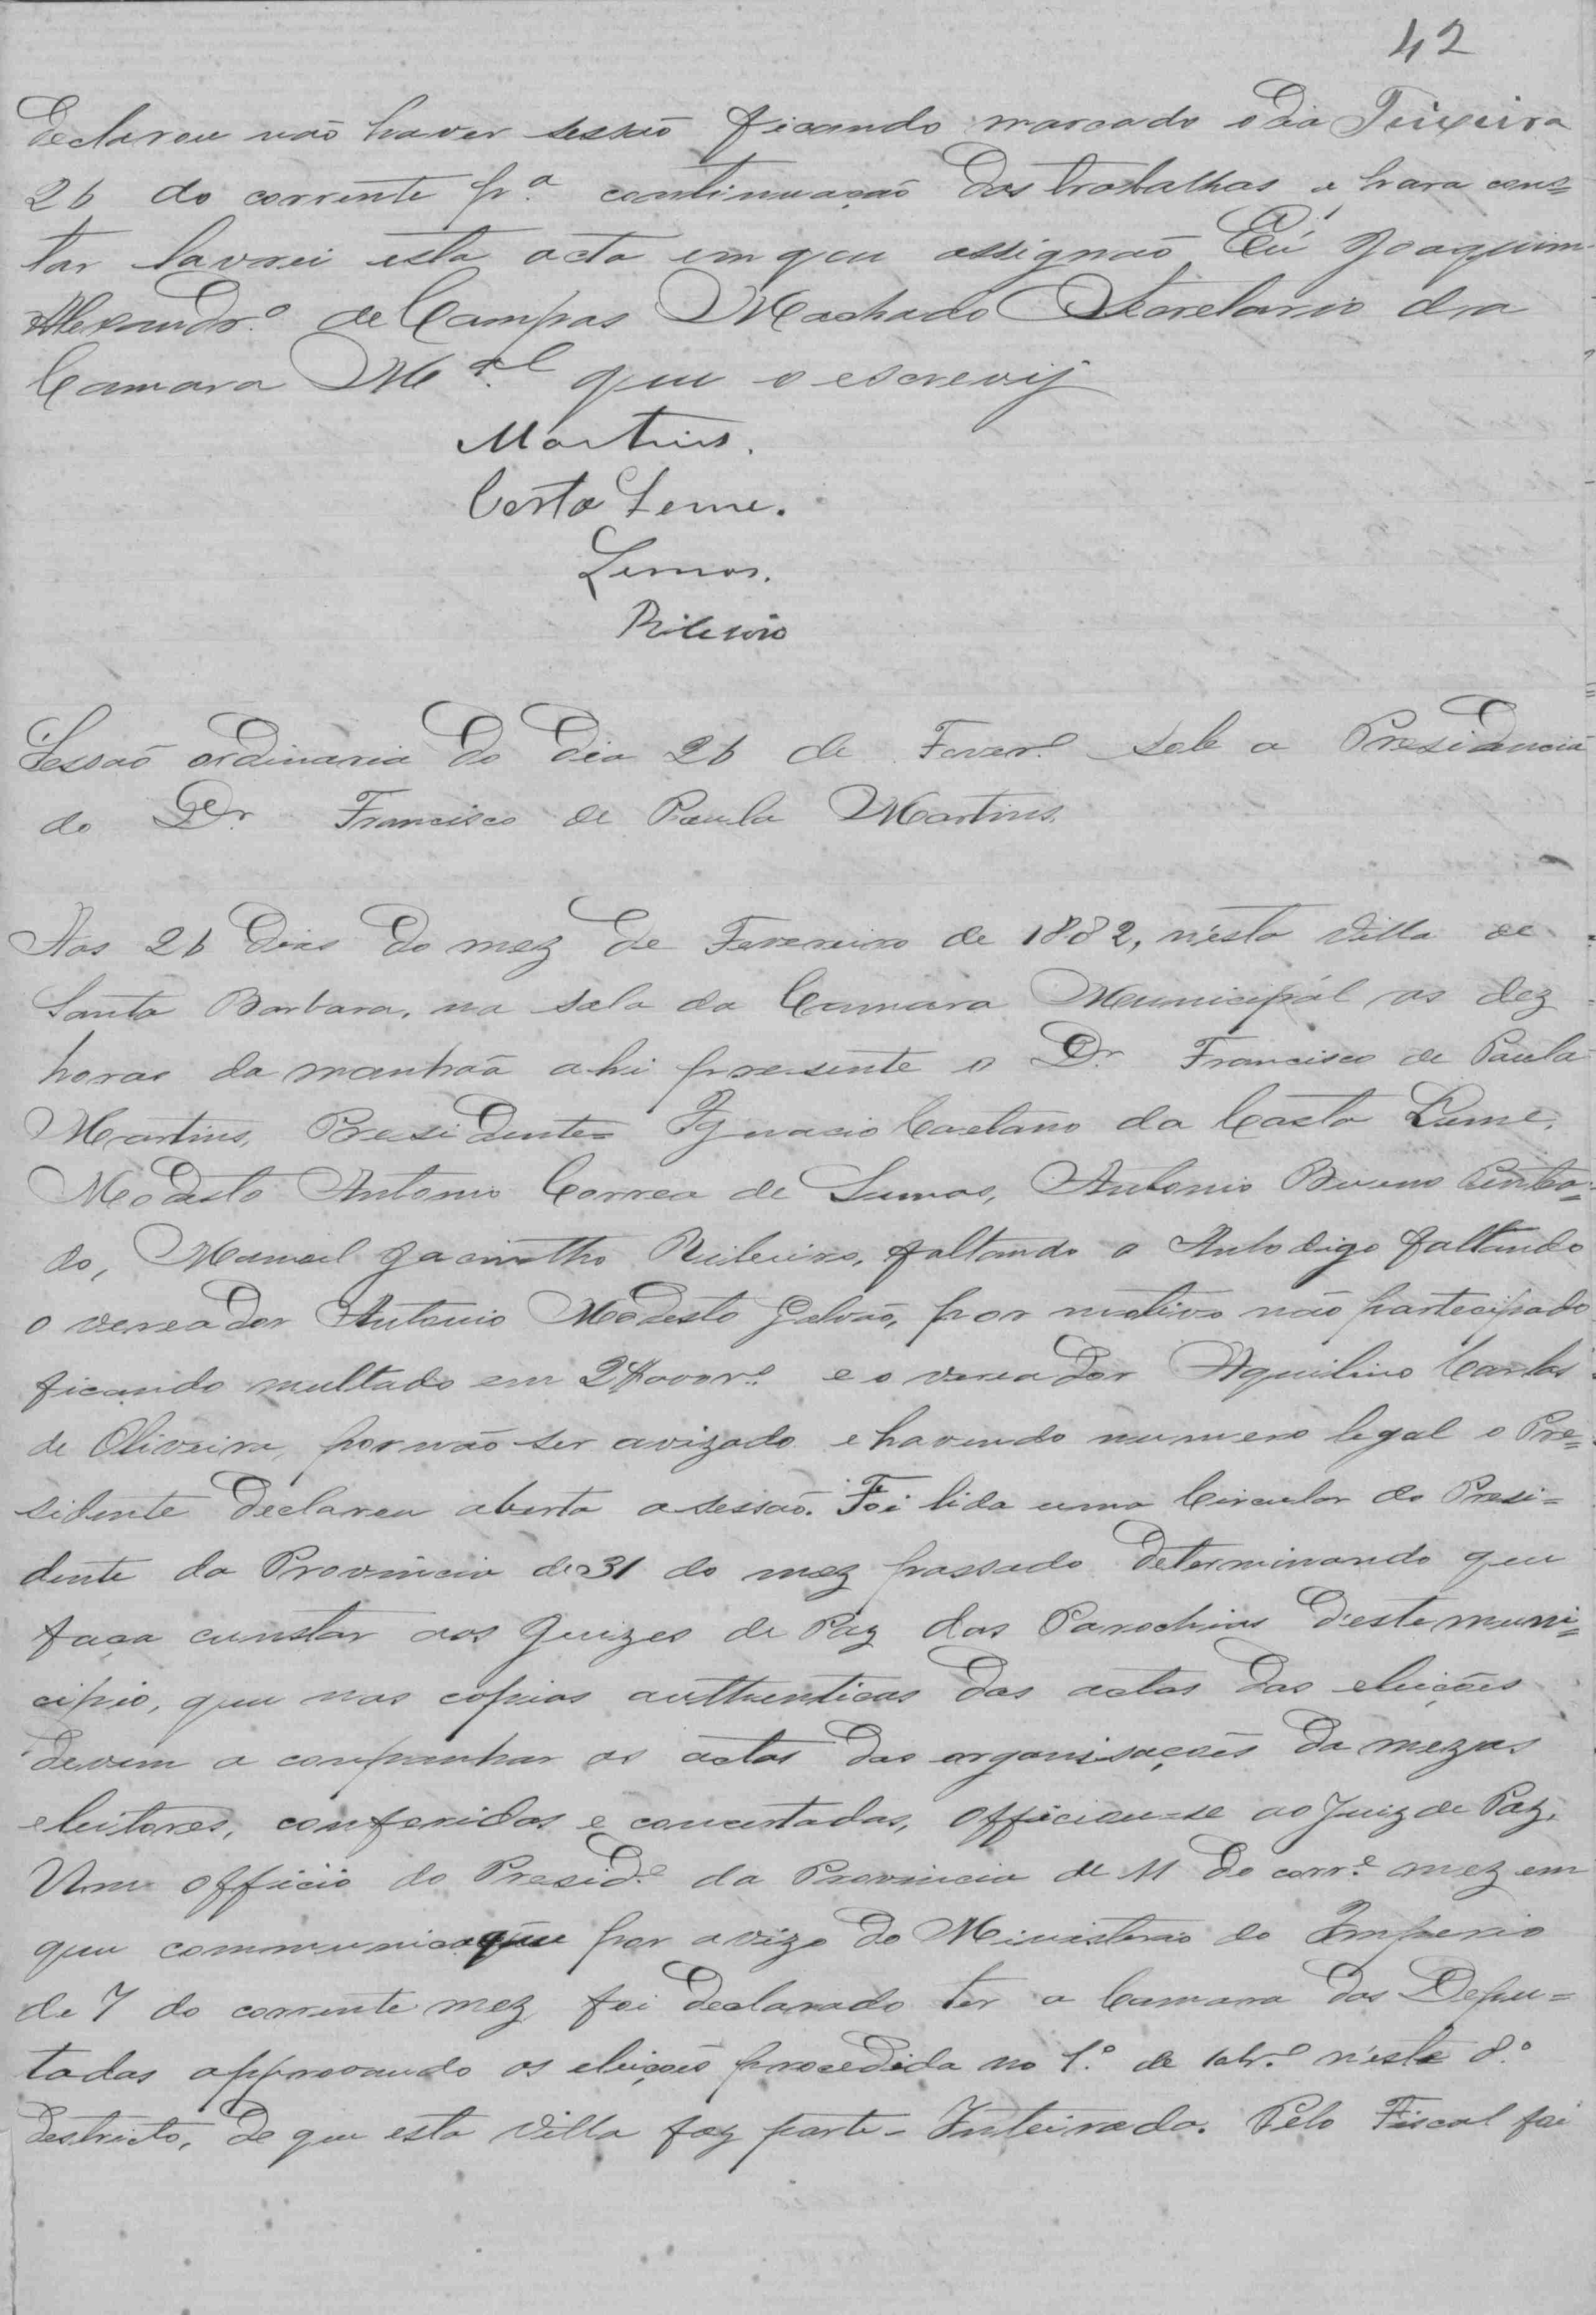 42
Teixeira
Declarou não haver sessão ficando marcado o dia
26 do corrente pª continuação dos trabalhos e para cons=
tar lavrei esta acta em que assignão, Eu Joaquim
Alexandrº de Campos Machado Secretario da
Camara M.al que o escrevij
Martins.
Costa Leme.
Lemos.
Ribeiro
Sessão ordinaria do dia 26 de Feverº sob a Presidencia
do Dr. Francisco de Paula Martins.
Aos 26 dias do mez de Fevereiro de 1882, n'esta Villa de
Santa Barbara, na sala da Camara Municipal as dez
horas da manhaã ahi presente o Dr. Francisco de Paula
Martins, Presidente= Ignacio Caetano da Costa Leme,
Modesto Antonio Correa de Lemos, Antonio Bueno Pentea=
do, Manoel Jacintho Ribeiro, faltando o Anto digo faltando
o vereador Antonio Modesto Galvão, por motivo não partecipado
ficando multado em e o vereador Aquilino Carlos
de Oliveira, por não ser avizado e havendo numero legal o Pre=
sidente declarou aberta a sessão. Foi lida uma Circular do Presi=
dente da Provincia de 31 do mez passado determinando que
faça constar aos Juizes de Paz das Parochias d'este muni=
cipio, que nas copias authenticas das actas das eleições
devem acompanhar as actas das organisações da mezas
eleitores, conferidas e concertadas, officiou-se ao Juiz de Paz.
Um officio do Presid.e da Provincia de 11 do corr.e mez em
que communica que por avizo do Ministerio do Imperio
de 7 do corrente mez, foi declarado ter a Camara dos Depu=
tados approvando as eleições procedida no 1.º de 10br.º n'este 8.º
destricto, de que esta Villa faz parte - Inteirado. Pelo Fiscal foi